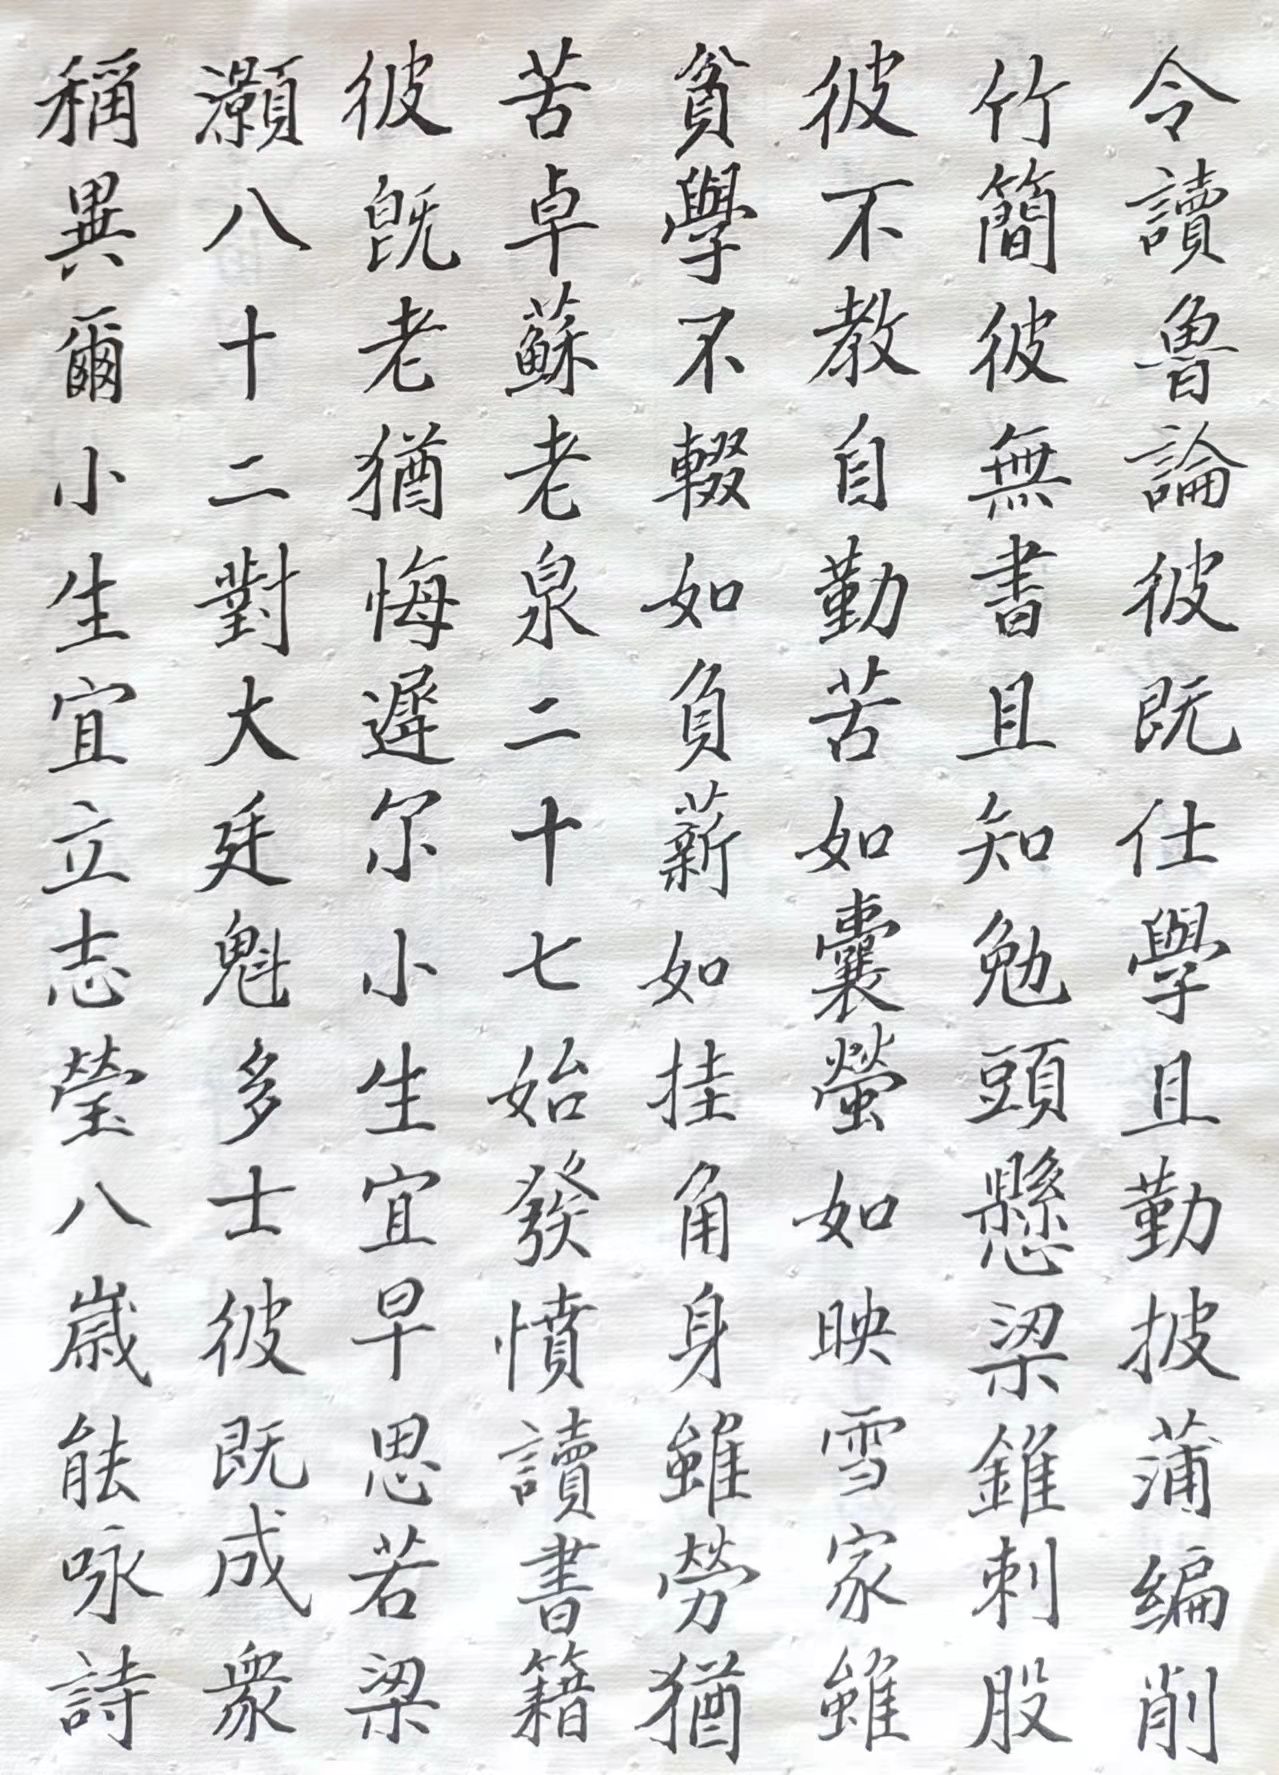 令讀魯論彼既仕學且勤披蒲編削
竹簡彼無書且知勉頭懸梁錐刺股
彼不教自勤苦如囊螢如映雪家雖
貧學不輟如負薪如挂角身雖勞猶
苦卓蘇老泉二十七始發憤讀書籍
彼既老猶悔遲尔小生宜早思若梁
灝八十二對大廷魁多士彼既成衆
稱異爾小生宜立志瑩八歲能咏詩